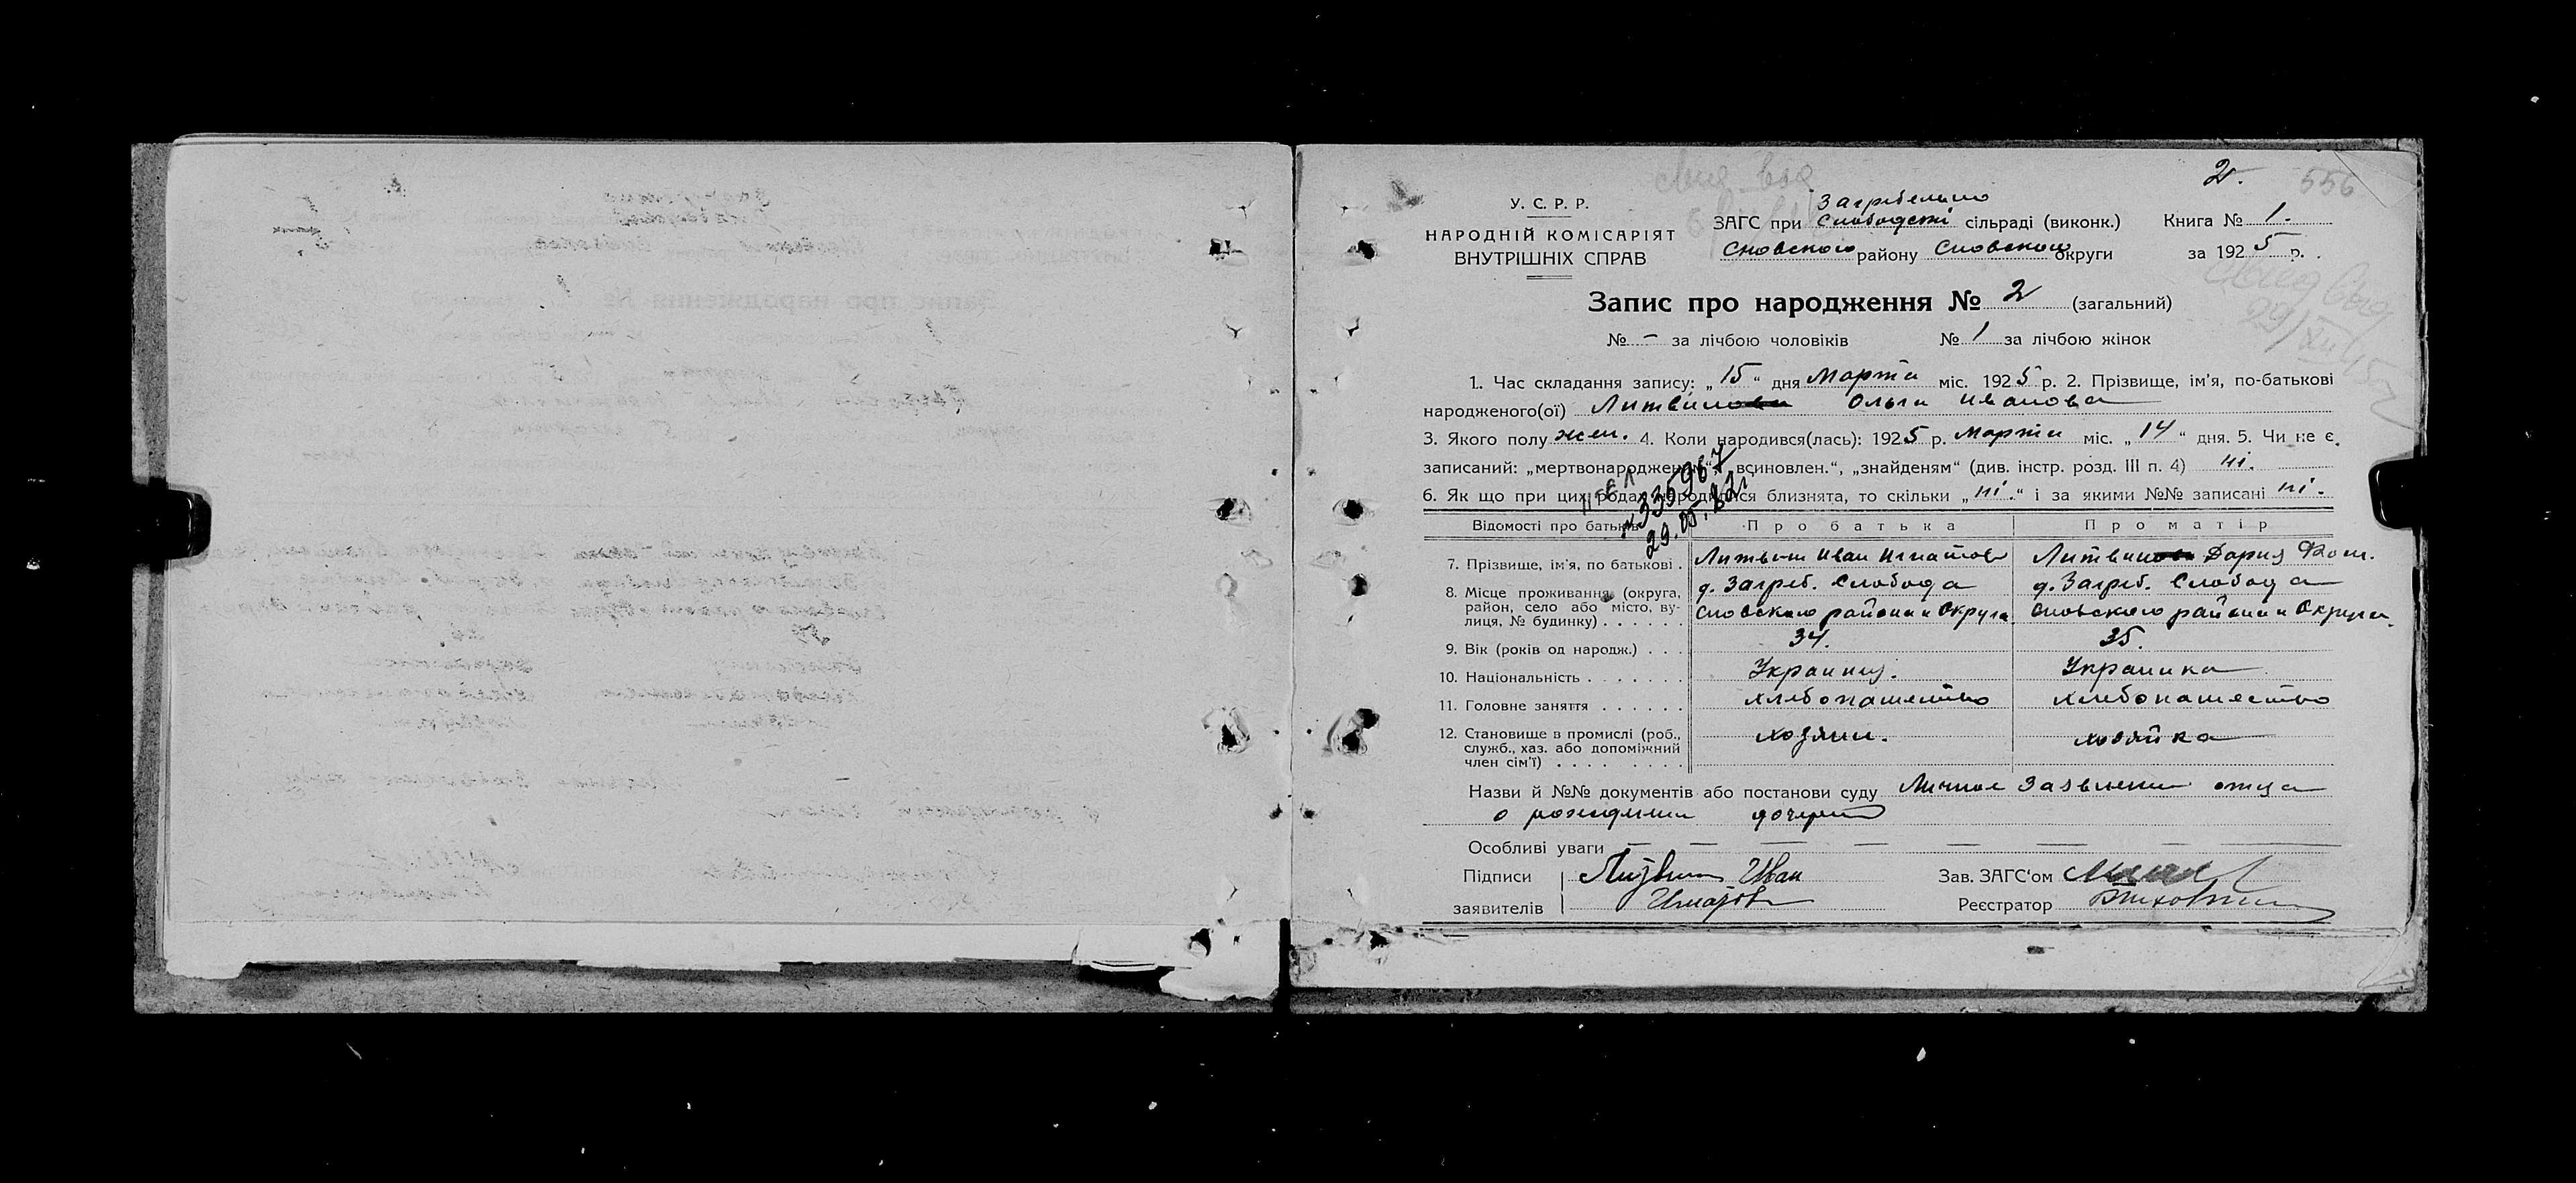 2.
556
У. С. Р. Р.
НАРОДНІЙ КОМІСАРІЯТ
ВНУТРІШНІХ СПРАВ
Загребельно
ЗАГС при Слободскі сільраді (виконк.) Книга № 1.
Сновского району Сновского округи за 1925 р.
Запис про народження № 2 (загальний)
№ – за лічбою чоловіків № 1 за лічбою жінок
1. Час складання запису: „15“ дня Марта міс. 1925 р. 2. Прізвище, ім'я, по-батькові
народженого(ої) Литвин Ольга Иванова
3. Якого полу жен. 4. Коли народився(лась): 1925 р. Марта міс. „14“ дня. 5. Чи не є
записаний: „мертвонароджений“, „всиновлен.“, „знайденям“ (див. інстр. розд. III п. 4) ні.
6. Як що при цих родах народилися близнята, то скільки „ні.“ і за якими №№ записані ні.
№ 335967
29.05.82г.
Відомості про батьків Про батька Про матір
7. Прізвище, ім'я, по батькові . Литвин Иван Игнатов Литвин Дария
8. Місце проживання (округа, район, село або місто, вулиця, № будинку) . . . . . . д. Загреб. Слобода Сновского района и Округа д. Загреб. Слобода Сновского района и Округа.
9. Вік (років од народж.) . . . 34. 35.
10. Національність . . . . . . . Украинц. Украинка
11. Головне заняття . . . . . . хлебопашество хлебопашество
12. Становище в промислі (роб., служб., хаз. або допоміжний член сім'ї) . . . . . . . . . хозяин. хозяйка
Назви й №№ документів або постанови суду Личное Заявление отца
о рождении дочери
Особливі уваги — — — — — — — —
Підписи Литвин Иван Зав. ЗАГС'ом
заявителів Игнатов Реєстратор